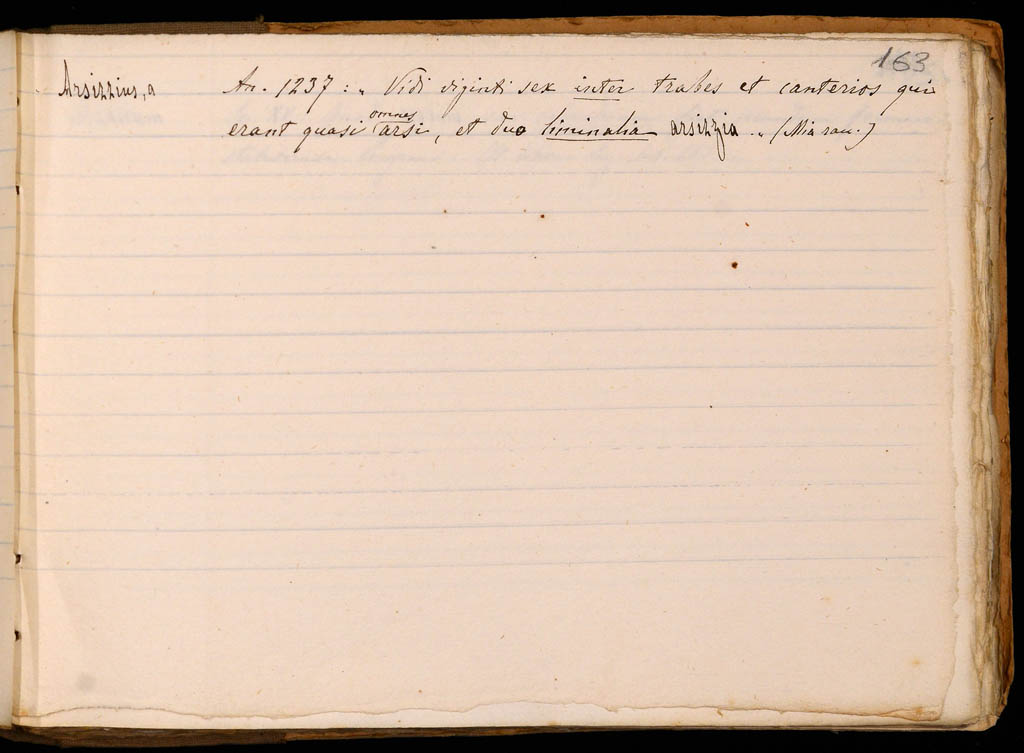 163
Arsizzius, a
An. 1237 : „ Vidi viginti sex inter trabes et canterios qui
erant quasi omnes arsi, et duo liminalia arsizzia „ (Mia rac.)